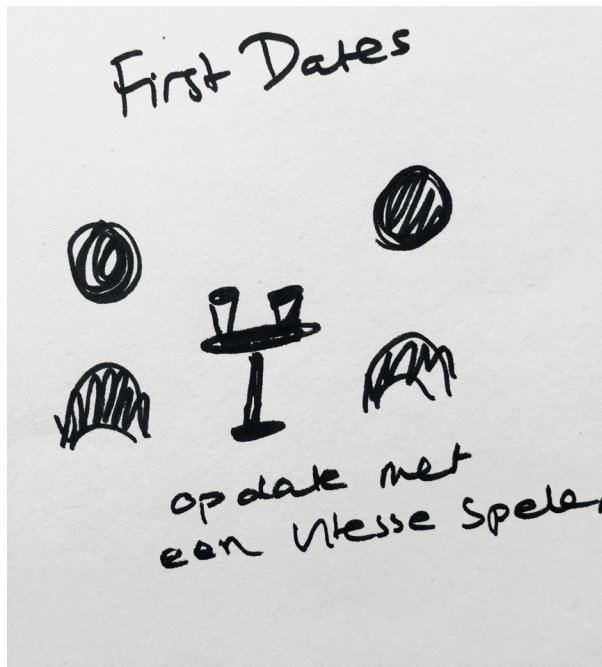 First Dates
op date met
een Vitesse Speler